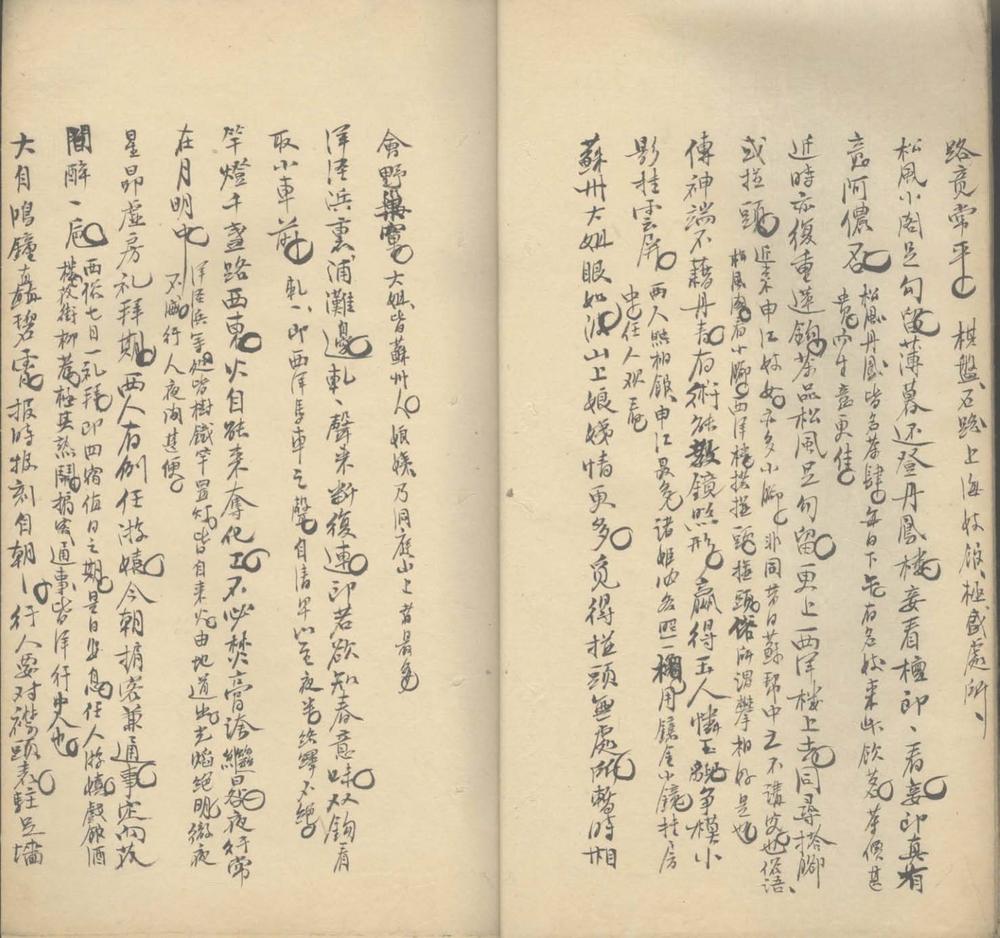 路竟常平 棋盤、石路上海妓館、極盛處所、
松風小閣足句留薄暮还登丹鳳樓妾看檀郎、看妾郎真有
意阿儂否 松風丹鳳皆名茶肆每日下午有名妓来此飲茗茶價甚
貴而生意更佳
近時亦復重蓮鉤茶品松風足句留更上一西洋楼上去同尋搭腳
或挜頭 近来申江妓女亦多小脚非同昔日蘇幫中之不講究也俗語、
松風閣有小脚西洋楼搭挜頭挜頭俗所謂攀相好是也
傳神端不藉丹青有術能教鏡照形贏得玉人憐玉貌争模小
影挂雲屏 西人照相館申江最多諸姬皆各照一楣用鑲金小鏡挂房
中任人观看
蘇州大姐眼如波山上娘姨情更多覓得挜頭無處所暫時相
會野巢窠 大姐皆蘇州人娘姨乃洞庭山上者最多
洋涇浜裏浦灘邊軋、聲来斷復連郎若欲知春意味双鉤看
取小車前 軋、即西洋馬車之聲自清早以至夜半絡繹不絕
竿燈千盞路西東火自能来奪化工不必焚膏誇繼晷夜行常
在月明中 洋涇浜等處皆樹鐵竿置燈皆自来火由地道出光焰絕明徹夜
不滅行人夜游甚便
星昴虚房礼拜期西人有例任游嬉今朝掮客兼通事定向花
間醉一卮 西俗七日一礼拜即四宿值日之期是日安息任人游嬉戲館酒
樓花街柳巷極其熱鬧掮客通事皆洋行中人也
大自鳴鐘矗碧霄报時报刻自朝、行人要对襟頭表駐足墻